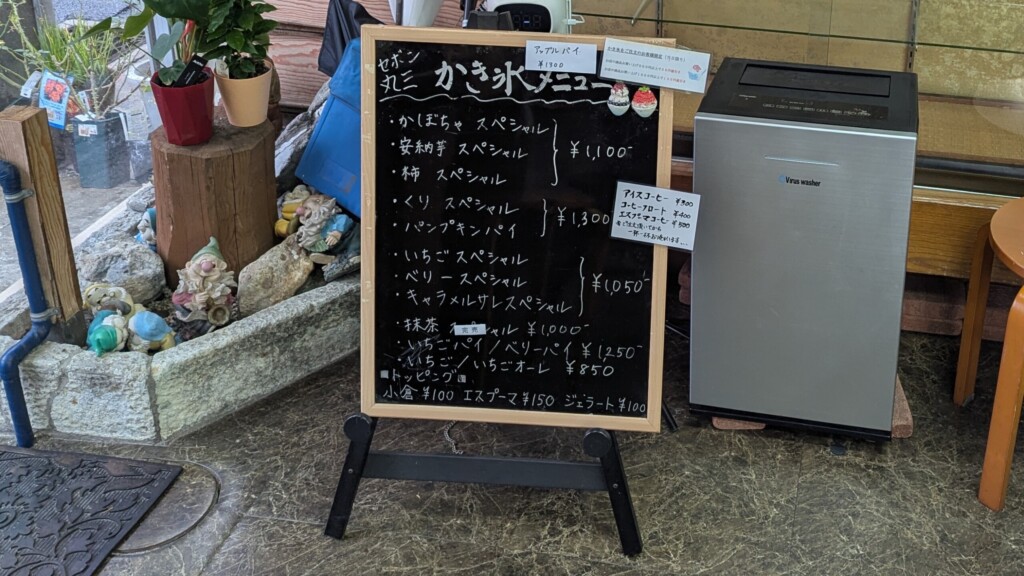 アップルパイ
¥1300
セボン
丸二
かき氷メニュー
・かぼちゃ スペシャル
・安納芋 スペシャル
・柿 スペシャル
¥1,100-
・くり スペシャル
・パンプキンパイ
¥1,300
・いちごスペシャル
・ベリースペシャル
・キャラメルサレスペシャル
¥1,050-
・抹茶 シャル ¥1,000-
完売
・いちごパイ/ベリーパイ ¥1,250-
・いちご/いちごオーレ ¥850
■トッピング■
小倉 ¥100 エスプーマ ¥150 ジェラート ¥100
アイスコーヒー ¥300
コーヒーフロート ¥400
エスプーマコーヒー ¥500
Virus washer